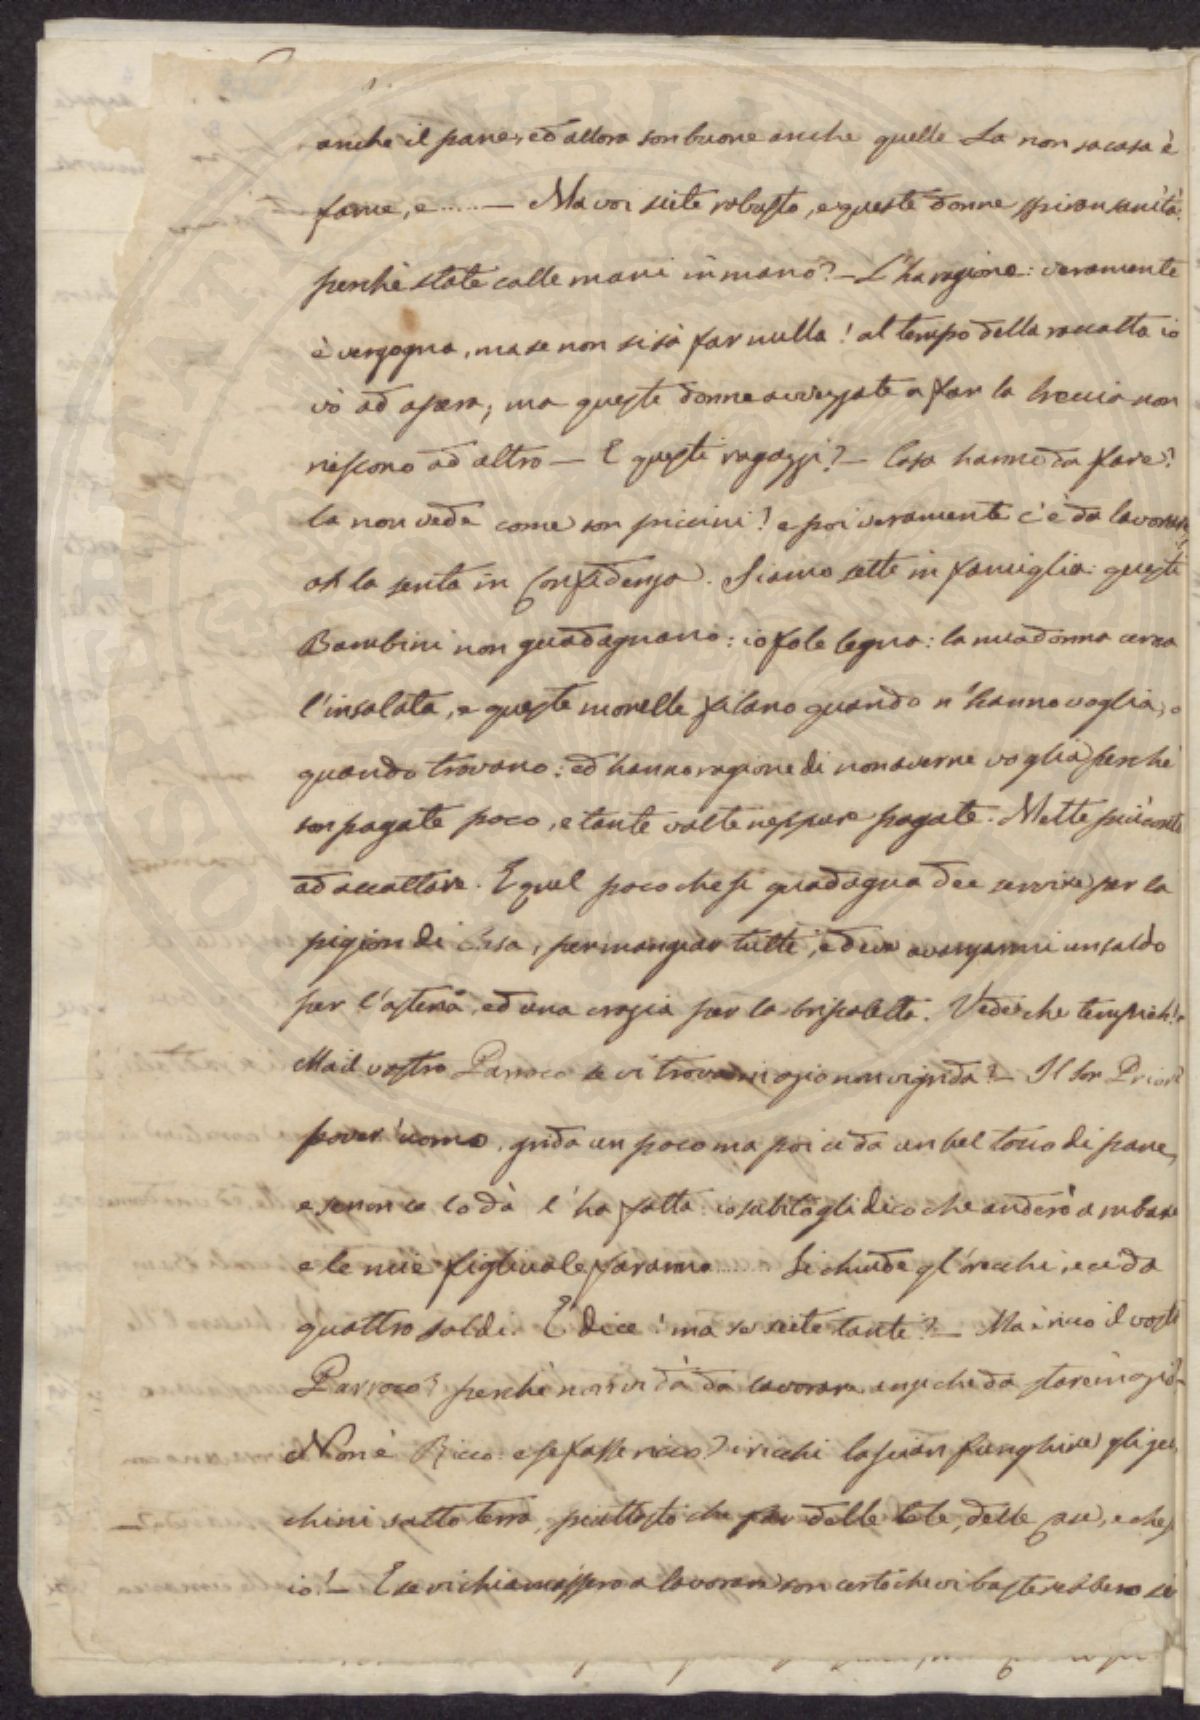 anche il pane, ed allora son buone anche quelle La non sa cosa è
fame, e ...... — Ma voi siete robusto, e queste donne spiran sanità:
perchè state colle mani in mano? — L'ha ragione: veramente
è vergogna, ma se non si sà far nulla! al tempo della raccolta io
vò ad opera, ma queste donne avvezzate a far la treccia non
riescono ad altro — E questi ragazzi? — Cosa hanno da fare?
la non vede come son piccini? e poi veramente c'è da lavorare
oh la senta in Confidenza. Siamo sette in famiglia: questi
Bambini non guadagnano: io fo le legna: la mia donna cerca
l'insalata, e queste monelle filano quando n'hanno voglia, o
quando trovano: ed hanno ragione di non averne voglia perchè
son pagate poco, e tante volte neppure pagate. Mette più conto
ad accattare. E quel poco che si guadagna dee servire per la
pigion di Casa, per mangiar tutti, e deve avanzarmi un soldo
per l'osteria, ed una crazia per la briscoletta. Vede che tempi eh!
Ma il vostro Parroco se vi trova in ozio non vi grida? — Il Sor Priore
pover'uomo, grida un poco ma poi ci dà un bel tocco di pane,
e se non ce lo dà l'ha fatta: io subito gli dico che anderò a rubare
e le mie figliuole faranno ....... Si chiude gl'orecchi, e ci dà
quattro soldi. E dice: ma se siete tanti? — Ma è ricco il vostro
Parroco? perchè non vi dà da lavorare invece che da stare in ozio —
Non è Ricco: e se fosse ricco? i ricchi lascian funghire gli zec-
chini sotto terra, piuttosto che far delle tele, delle case, e che so
io! — E se vi chiamassero a lavorare son certo che vi basterebbero sì